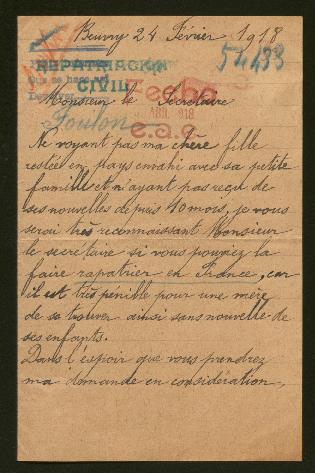 Beuvry 24 Février 1918
54433
REPATRIATION
CIVIL
Monsieur le Secrétaire
Toulon
e.a.c.
Ne voyant pas ma chère fille
restée en pays envahi avec sa petite
famille et n'ayant pas reçu de
ses nouvelles depuis 10 mois, je vous
serai très reconnaissant Monsieur
le secrétaire si vous pouviez la
faire rapatrier en France, car
il est très pénible pour une mère
de se trouver ainsi sans nouvelle de
ses enfants.
Dans l'espoir que vous prendrez
ma demande en considération,